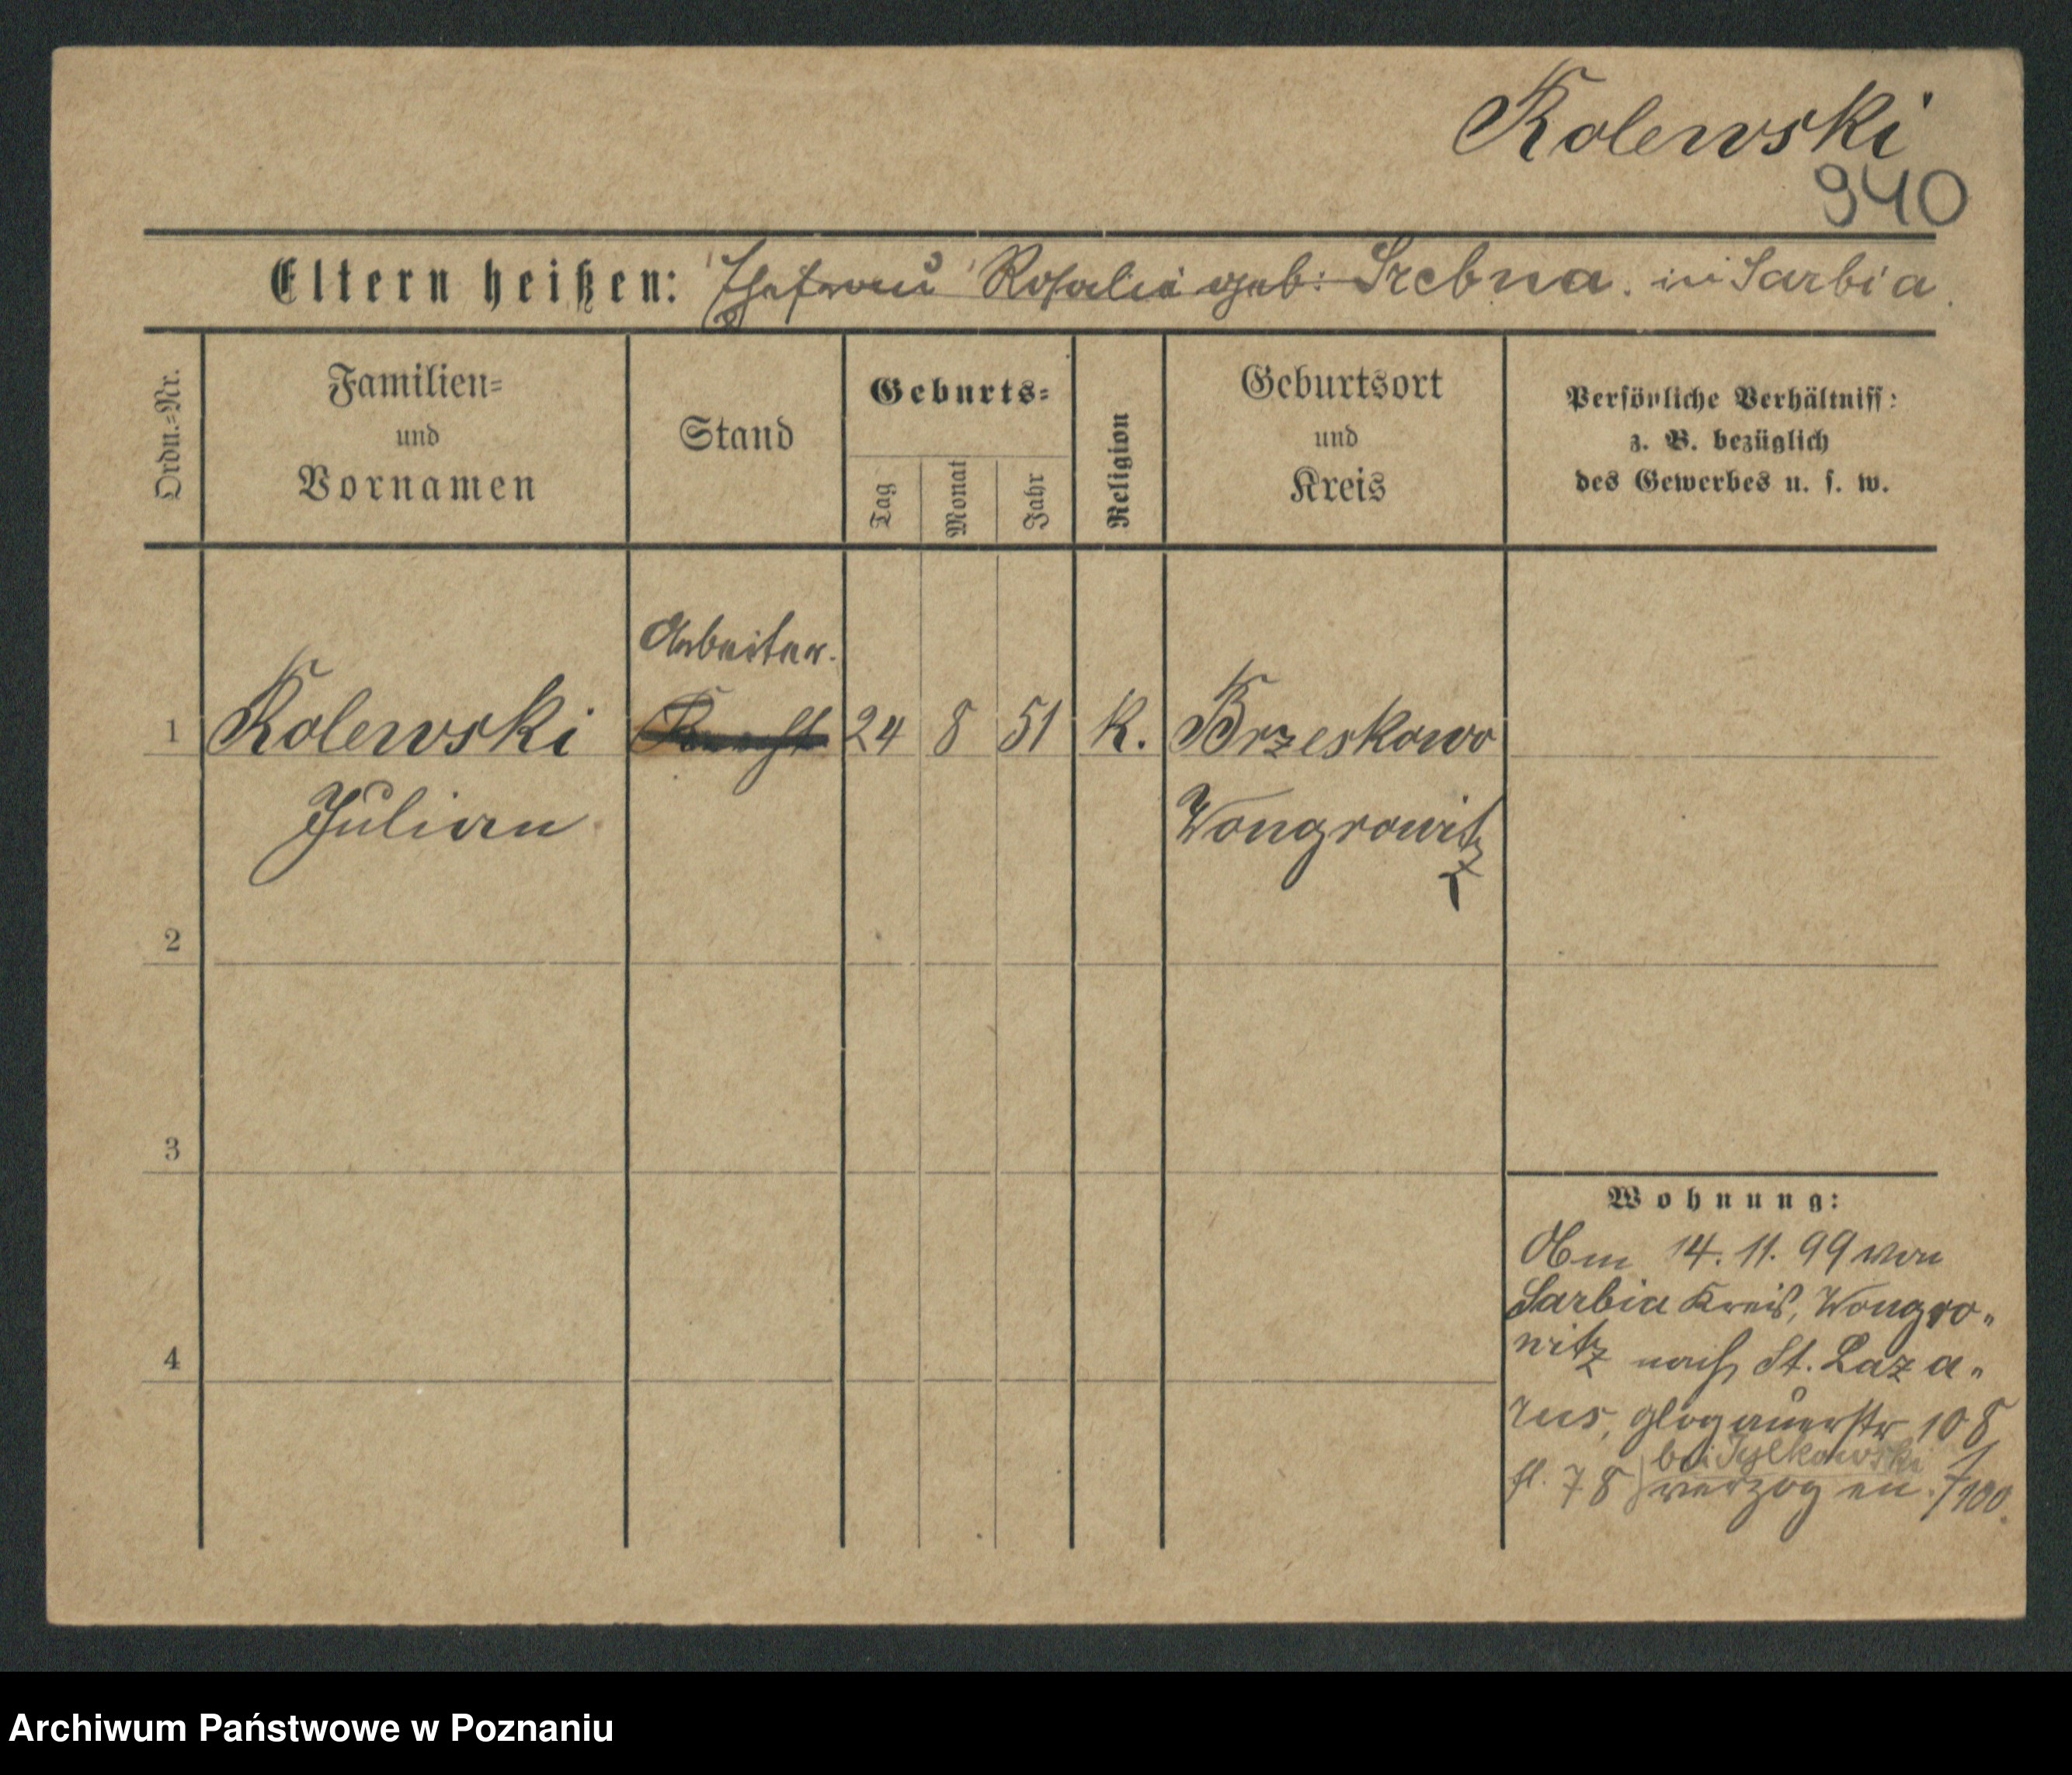 Kolewski
940
Eltern heißen: Ehefrau Rosalie geb: Srebna. in Sarbia.
Ordn.-Nr.
Familien-
und
Vornamen
Stand
Geburts-
Tag
Monat
Jahr
Religion
Geburtsort
und
Kreis
Persönliche Verhältniss:
z. B. bezüglich
des Gewerbes u. s. w.
Arbeiter.
1 Kolewski Knecht 24 8 51 K. Brzeskowo
Julian Wongrowitz
2
3
4
Wohnung:
Am 14. 11. 99 von
Sarbia Kreis, Wongro-
witz nach St. Laza-
rus, glogauerstr 108
bei
fl. 78 verzogen.
Archiwum Państwowe w Poznaniu